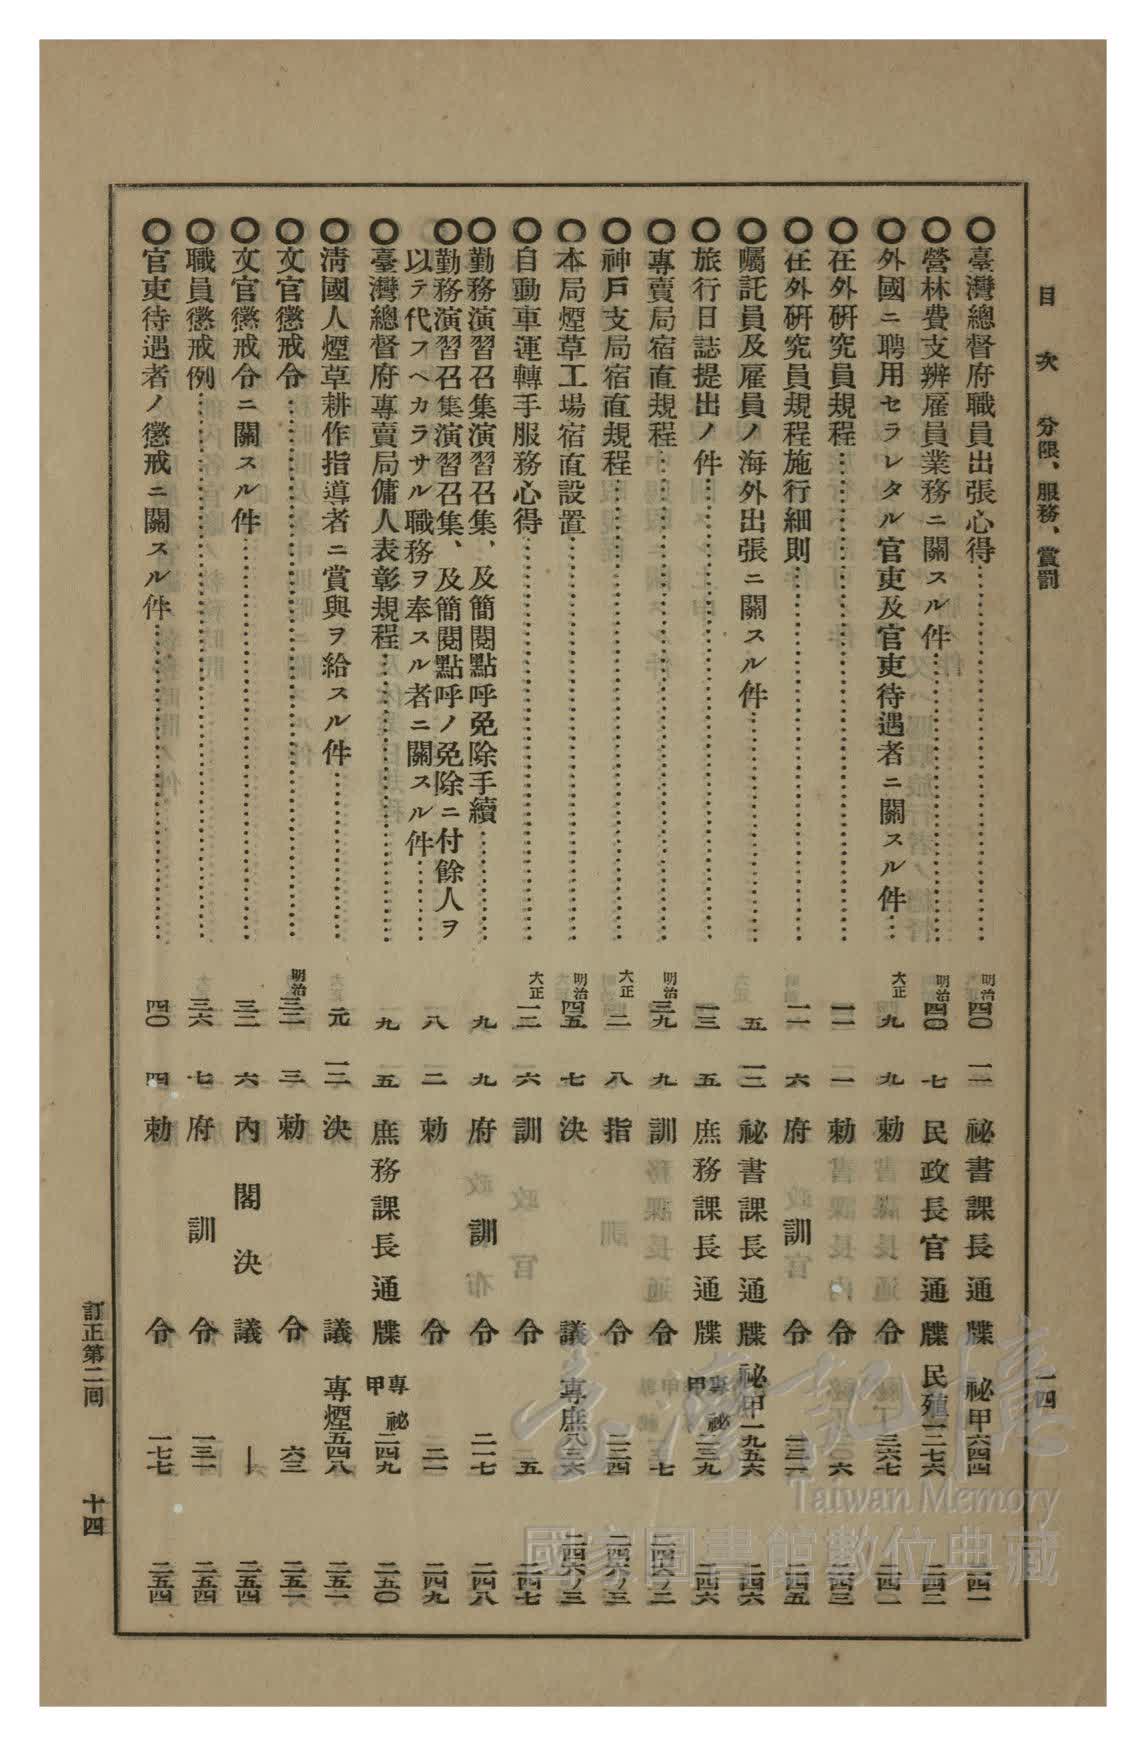 目次　分限、服務、賞罰　一四
○臺灣總督府職員出張心得……　明治四〇　一一　祕書課長通牒　祕甲六四四　二四一
○營林費支辨雇員業務ニ關スル件……　明治四〇　七　民政長官通牒　民殖一二七六　二四二
○外國ニ聘用セラレタル官吏及官吏待遇者ニ關スル件…　大正　九　九　勅令　三六七　二四二
○在外硏究員規程……　一一　一　勅令　六　二四三
○在外硏究員規程施行細則……　一一　六　府訓令　一三一　二四五
○囑託員及雇員ノ海外出張ニ關スル件……　五　一二　祕書課長通牒　祕甲一九五六　二四六
○旅行日誌提出ノ件……　一三　五　庶務課長通牒　專祕甲二三九　二四六
○專賣局宿直規程……　明治三九　九　訓令　七　二四六ノ二
○神戶支局宿直規程……　大正　二　八　指令　二二四　二四六ノ三
○本局煙草工場宿直設置……　明治四五　七　決議　專庶八三六　二四六ノ三
○自動車運轉手服務心得……　大正一二　六　訓令　五　二四七
○勤務演習召集演習召集、及簡閱點呼免除手續……　九　九　府訓令　二一七　二四八
○勤務演習召集演習召集、及簡閱點呼ノ免除ニ付餘人ヲ
以テ代フヘカラサル職務ヲ奉スル者ニ關スル件……　八　二　勅令　二一　二四九
○臺灣總督府專賣局傭人表彰規程……　九　五　庶務課長通牒　專祕甲二四九　二五〇
○淸國人煙草耕作指導者ニ賞與ヲ給スル件……　元　一二　決議　專煙五四八　二五一
○文官懲戒令……　明治三二　三　勅令　六三　二五一
○文官懲戒令ニ關スル件……　三二　六　內閣決議　—　二五四
○職員懲戒例……　三六　七　府訓令　一三一　二五四
○官吏待遇者ノ懲戒ニ關スル件……　四〇　四　勅令　一七七　二五四
訂正第二回　十四
臺灣記憶
Taiwan Memory
國家圖書館數位典藏